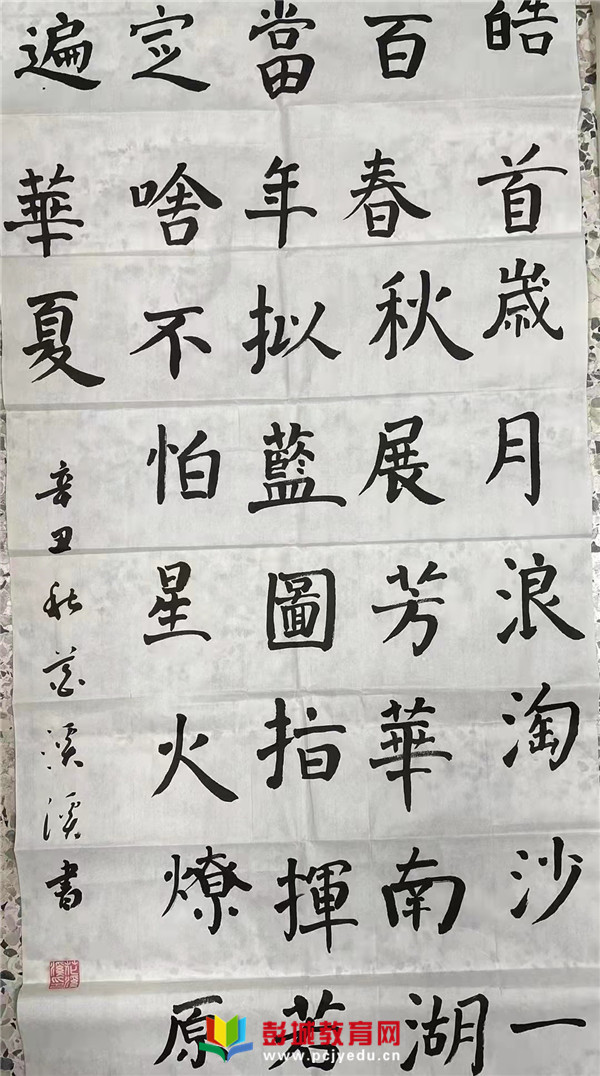 皓首歲月浪淘沙一
百春秋展芳華南湖
當年拟藍圖指揮若
定啥不怕星火燎原
遍華夏
辛丑秋花溪溪書
彭城教育网
www.pcjyedu.cn